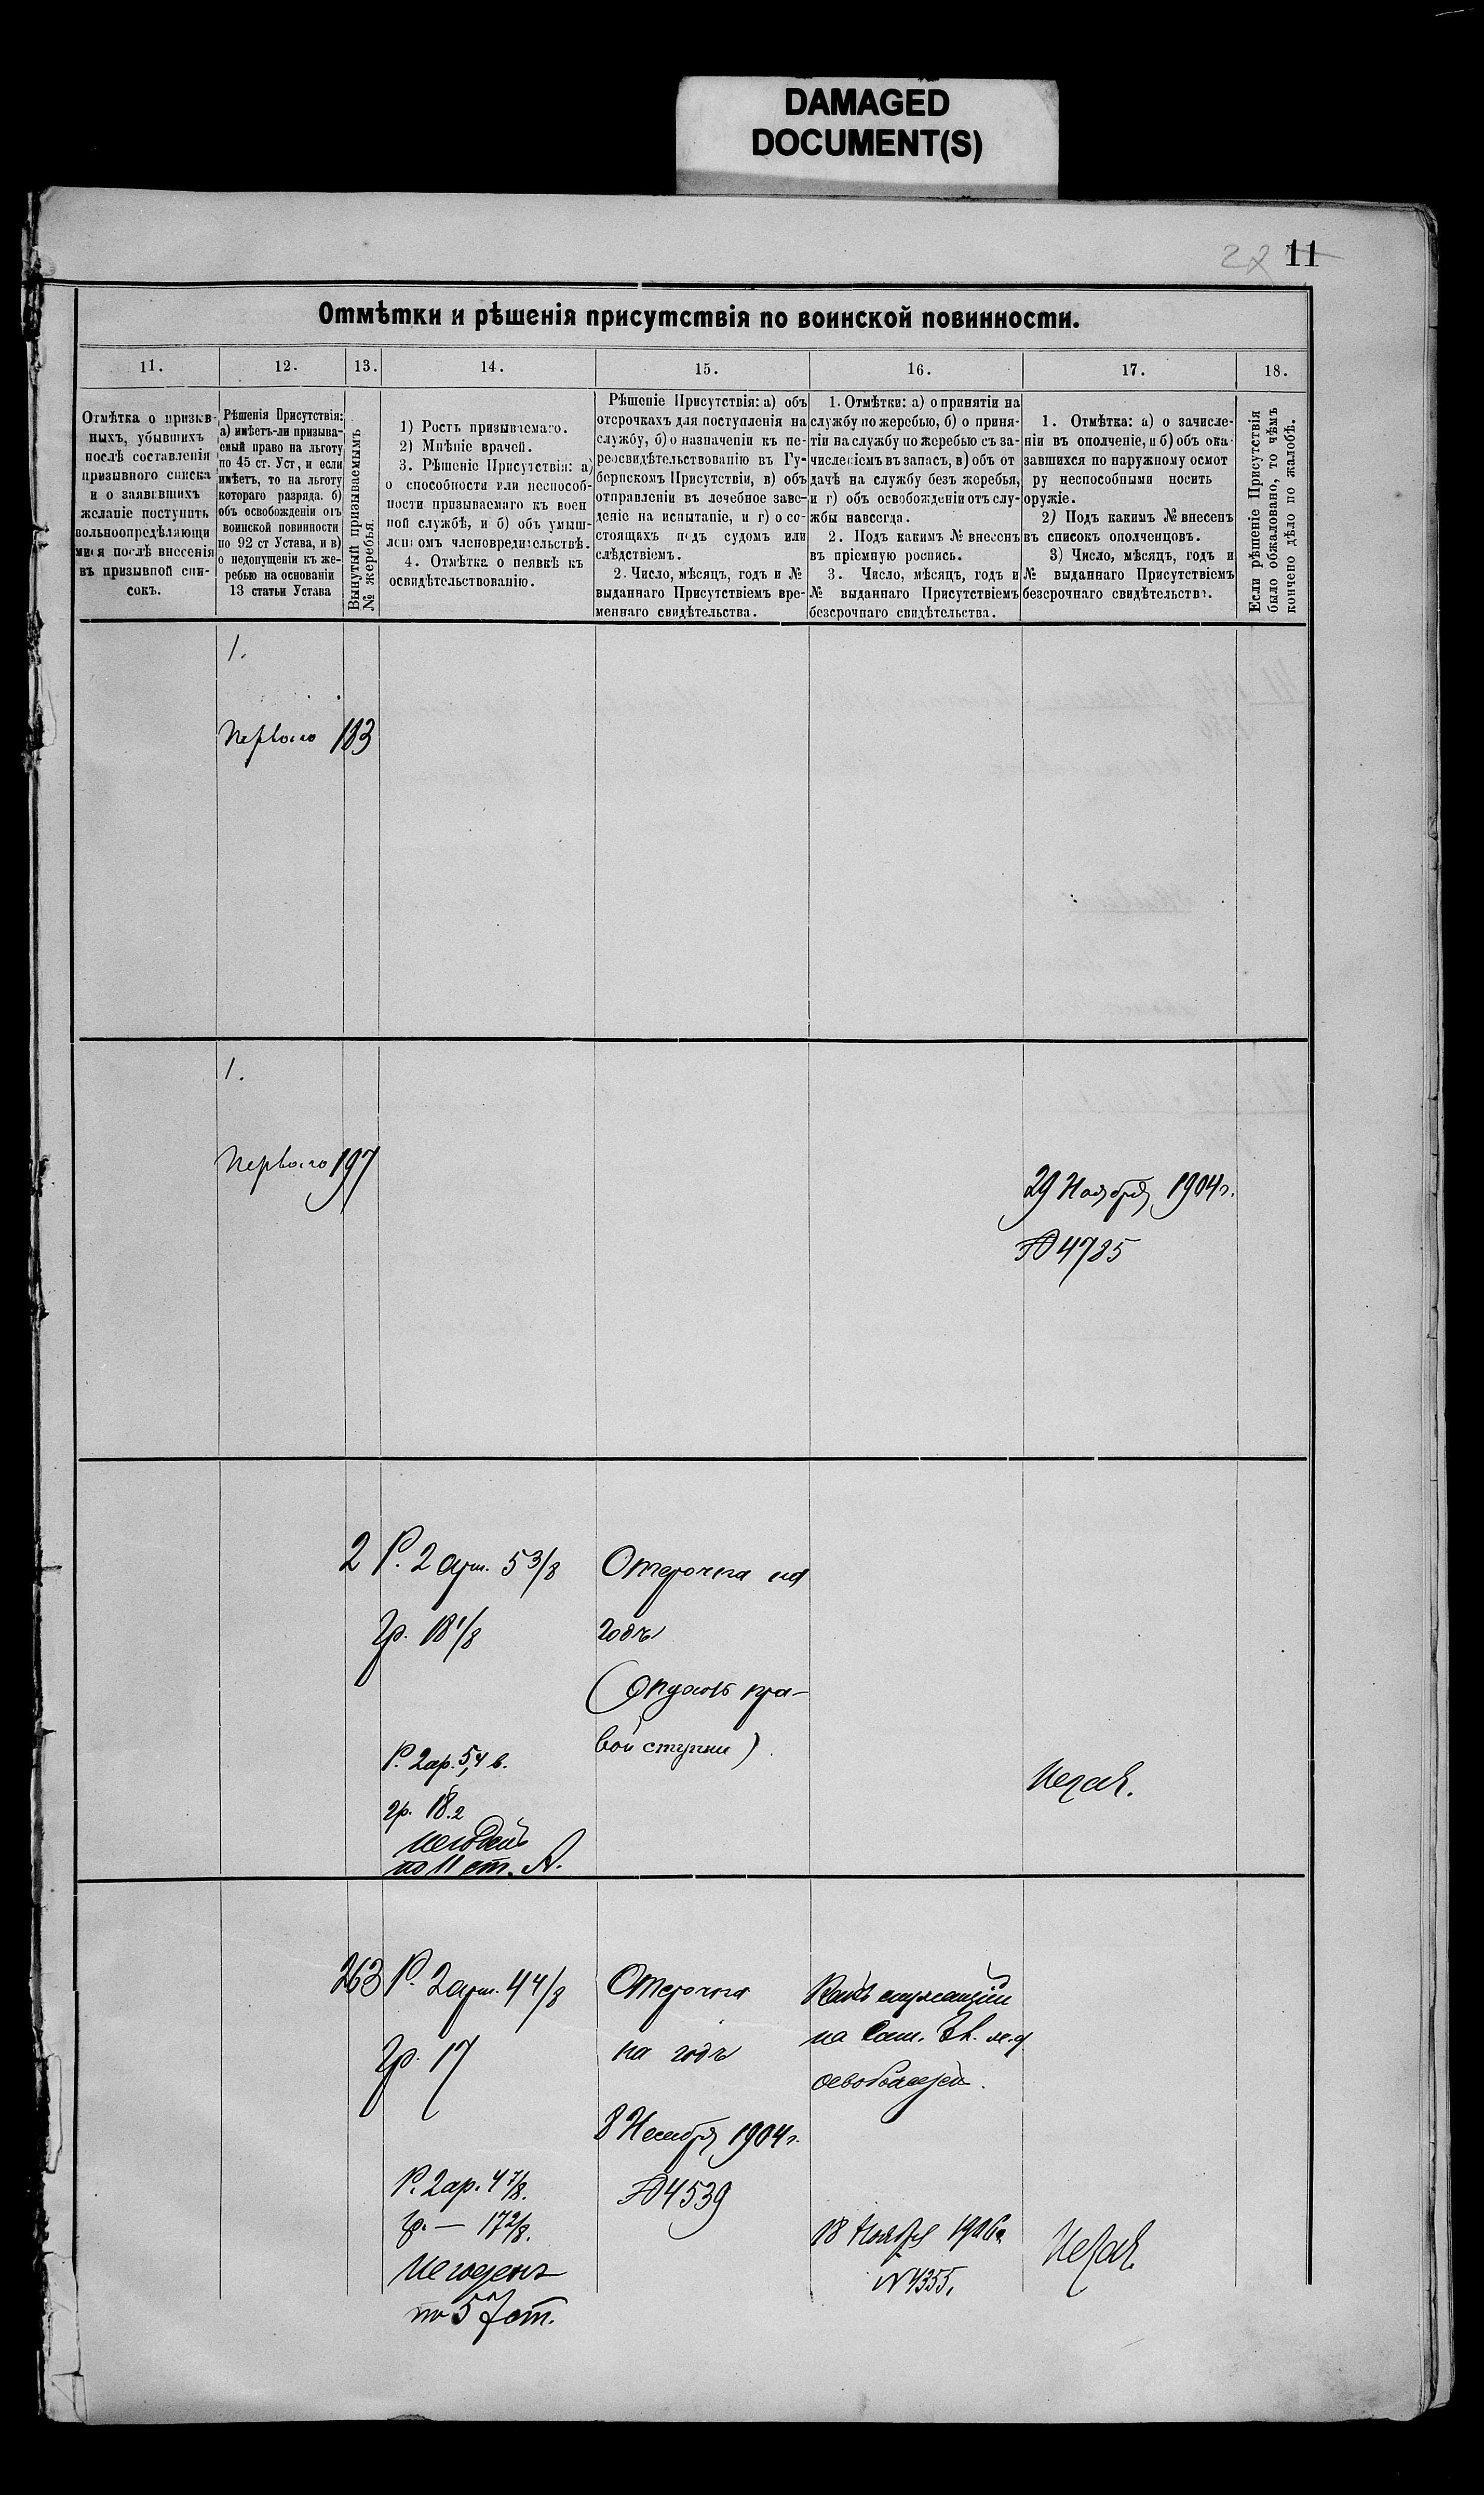 DAMAGED
DOCUMENT(S)
11
Отмѣтки и рѣшенія присутствія по воинской повинности.
11.
12.
13.
14.
15.
16.
17.
18.
Отмѣтка о призыв-
ныхъ, убывшихъ
послѣ составленія
призывного списка
и о заявившихъ
желаніе поступить
вольноопредѣляющи
мися послѣ внесенія
въ призывной спи-
сокъ.
Рѣшенія Присутствія:
а) имѣетъ-ли призыва-
емый право на льготу
по 45 ст. Уст, и если
имѣетъ, то на льготу
котораго разряда. б)
объ освобожденіи отъ
воинской повинности
по 92 ст Устава, и в)
о недопущеніи къ же-
ребью на основаніи
13 статьи Устава
Вынутый призываемымъ
№ жеребья.
1) Ростъ призываемаго.
2) Мнѣніе врачей.
3. Рѣшеніе Присутствія: а)
о способности или неспособ-
ности призываемаго къ воен
ной службѣ, и б) объ умыш-
ленномъ членовредительствѣ.
4. Отмѣтка о неявкѣ къ
освидѣтельствованію.
Рѣшеніе Присутствія: а) объ
отсрочкахъ для поступленія на
службу, б) о назначеніи къ пе-
реосвидѣтельствованію въ Гу-
бернскомъ Присутствіи, в) объ
отправленіи въ лечебное заве-
деніе на испытаніе, и г) о со-
стоящихъ подъ судомъ или
слѣдствіемъ.
2. Число, мѣсяцъ, годъ и №
выданнаго Присутствіемъ вре-
меннаго свидѣтельства.
1. Отмѣтки: а) о принятіи на
службу по жеребью, б) о приня-
тіи на службу по жеребью съ за-
численіемъ въ запасъ, в) объ от
дачѣ на службу безъ жеребья,
и г) объ освобожденіи отъ слу-
жбы навсегда.
2. Подъ какимъ № внесенъ
въ пріемную роспись.
3. Число, мѣсяцъ, годъ и
№ выданнаго Присутствіемъ
безсрочнаго свидѣтельства.
1. Отмѣтка: а) о зачисле-
ніи въ ополченіе, и б) объ ока-
завшихся по наружному осмот
ру неспособными носить
оружіе.
2) Подъ какимъ № внесенъ
въ списокъ ополченцовъ.
3) Число, мѣсяцъ, годъ и
№ выданнаго Присутствіемъ
безсрочнаго свидѣтельства.
Если рѣшеніе Присутствія
было обжаловано, то чѣмъ
кончено дѣло по жалобѣ.
1.
Перваго 183
1.
Перваго 197
29 Ноября 1904 г.
№ 4785
2
Р. 2 арш. 5 3/8
Гр. 18 1/8
Р. 2 ар. 5,4 в.
гр. 18.2
негоденъ
по 11 ст. А.
Отсрочка на
годъ
(Опухоль пра-
вой ступни)
263
Р. 2 арш. 4 4/8
Гр. 17
Р. 2 ар. 4 7/8.
гр. — 17 2/8.
Негоденъ
по 57 ст.
Отсрочка
на годъ
8 Ноября 1904 г.
№ 4539
Какъ служащій
на
18 Ноября 1906 г.
№ 4355.